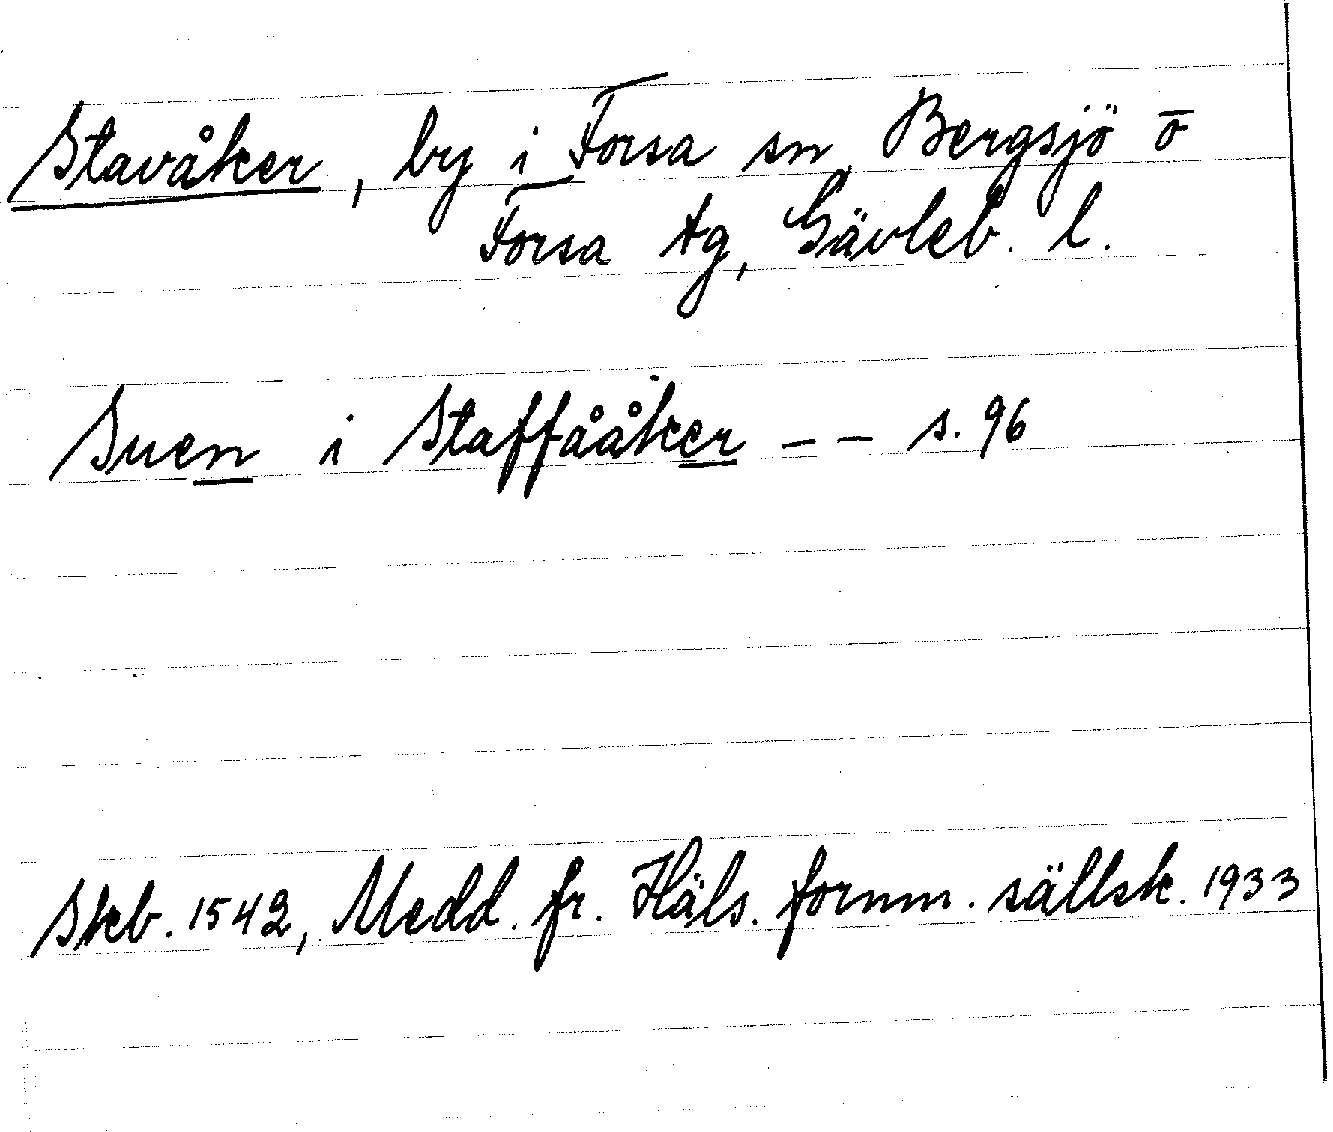 Stavåker, by i Forsa sn, Bergsjö o
Forsa tg, Gävleb. l.
Suen i Staffååker – – s. 96
Skb. 1542, Medd. fr. Häls. fornm. sällsk. 1933